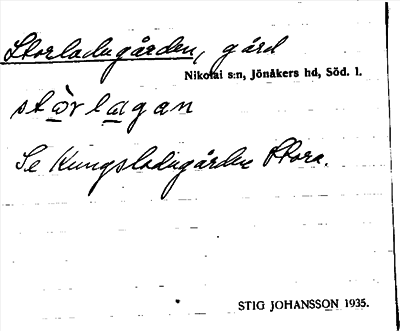 Storladugården, gård
Nikolai s:n, Jönåkers hd, Söd. l.
stòrlagan
Se Kungsladugården Stora.
STIG JOHANSSON 1935.